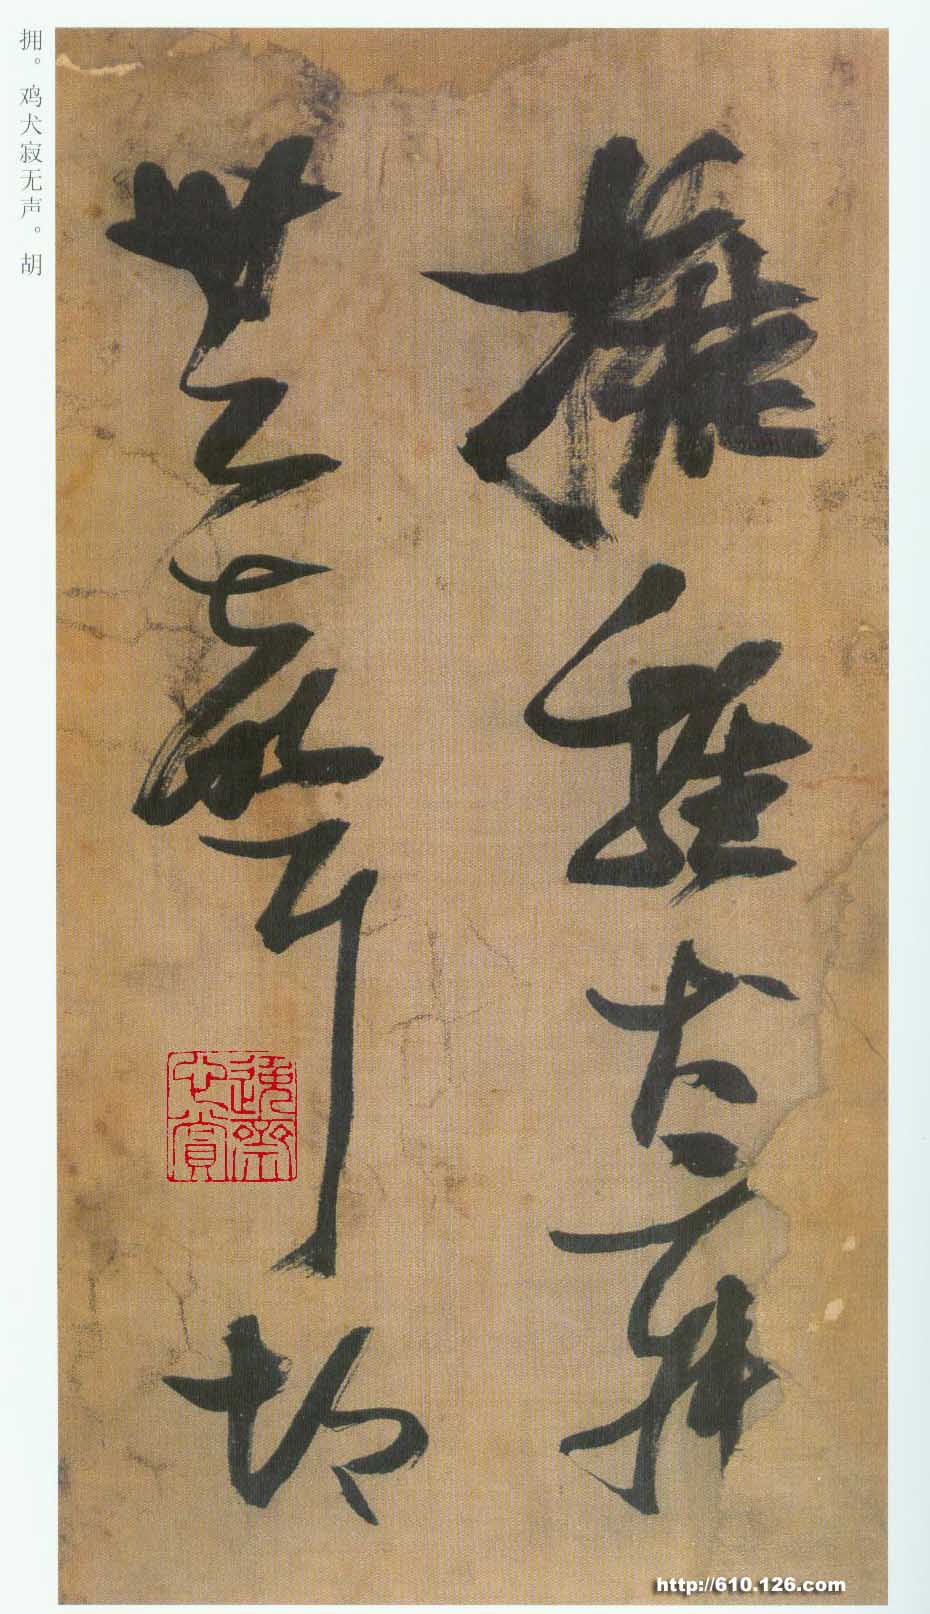 擁雞犬寂
無聲胡
拥。鸡犬寂无声。胡
http://610.126.com